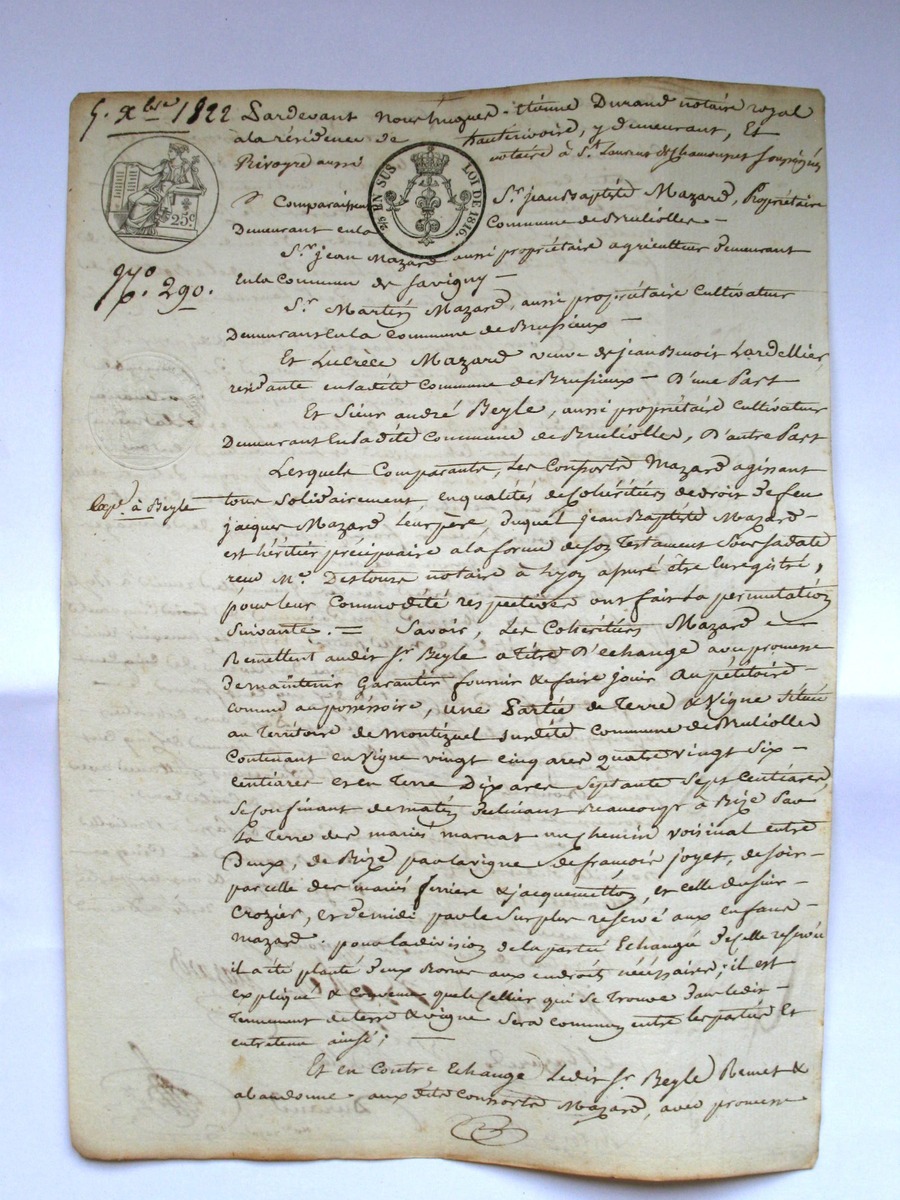 5. Xbre 1822
Pardevant Nous hugues-étienne Durand notaire royal
a la résidence de hauterivoire, y demeurant, Et
Rivoyre aussi notaire à St Laurent de Chamousset soussignés
25c.
25 EN SUS LOI DE 1816.
Comparaissent Sr. jean Baptiste Mazard, Propriétaire
Demeurant en la Commune de Brulioles —
Sr. jean Mazard aussi propriétaire agriculteur demeurant
En la Commune de Savigny —
No. 290.
Sr. Martin Mazard, aussi propriétaire Cultivateur
Demeurant En la Commune de Brussieux —
Et Lucrèce Mazard veuve de jean Benoit Lardellier
résidante en ladite Commune de Brussieux — D'une Part
Et Sieur andré Beyle, aussi propriétaire Cultivateur
Demeurant En ladite Commune de Brulioles, D'autre Part
Lesquels Comparants, Les Consorts Mazard agissant
Expn. à Beyle
tous Solidairement, en qualités de Cohéritiers de droit de feu
jacques Mazard leur père, duquel jean Baptiste Mazard —
est héritier précipuaire a la forme de son Testament Sous sa date
reçu Me. Destours notaire à Lyon assuré être Enregistré,
pour leur Commodité respective ont fait la permutation
Suivante. = Savoir, Les Cohéritiers Mazard —
Remettent audit Sr. Beyle a titre D'échange avec promesse
De maintenir Garantir fournir & faire jouir Au pétitoire —
comme au possessoire, une Partie de Terre & Vigne située
au Territoire de Montizuel susdite Commune de Brulioles
Contenant en Vigne vingt cinq ares quatre vingt Six —
Centiares et en Terre Dix ares Septante Sept Centiares,
Se Confinant de matin declinant Beaucoup à Bize Par
La Terre des mariés marnat un chemin voisinal entre
Deux, de Bize par la vigne de françois joyet, de soir —
par celle des mariés ferriere & jacquemetton, et celle du sieur —
Crozier, et de midi par le surplus réservé aux enfans —
Mazard: pour la division de la partie Echangée d'icelle réservée
il a été planté deux Bornes aux endroits nécéssaires; il est
expliqué & convenu que le Cellier qui se Trouve dans ledit —
Tennement de terre & vigne sera commun entre les parties Et
entretenu ainsi; —
Et en Contre Echange Ledit Sr. Beyle Remet &
abandonne aux dits Consorts Mazard, avec promesse